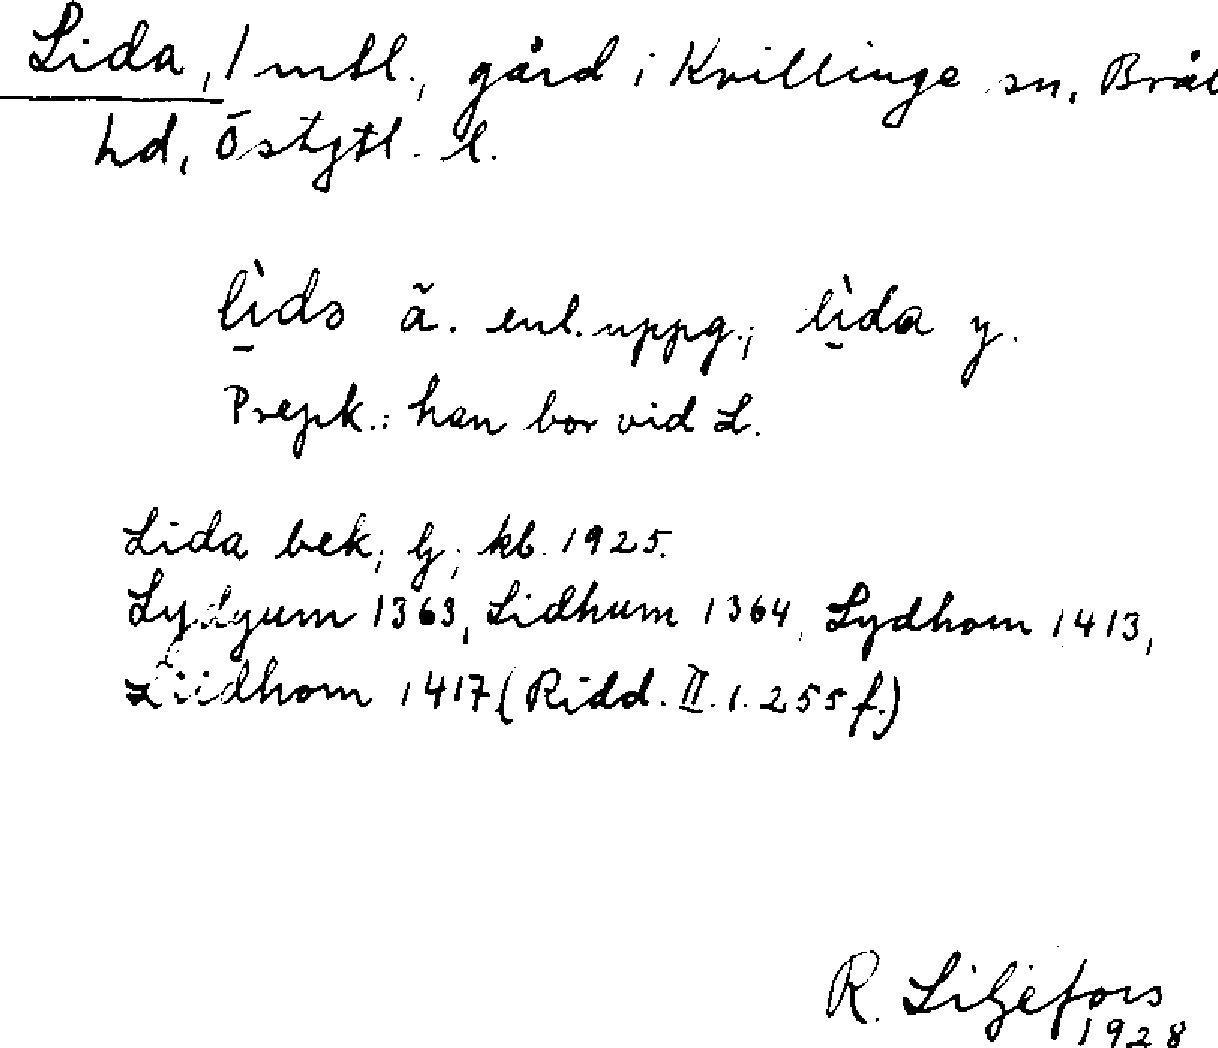 Lida, 1 mtl., gård i Kvillinge sn, Bråb
hd, Östgtl. l.
lìdɔ ã. enl. uppg.; lìda y.
Prepk.: han bor vid L.
Lida bek; lj; kb. 1925.
Lydgum 1363, Lidhum 1364, Lydhom 1413,
Liidhom 1417 (Ridd. II. 1. 255 f.)
R. Liljefors
1928